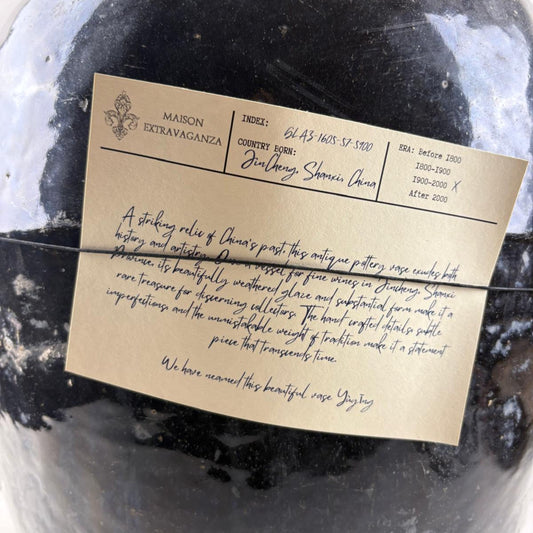 MAISON
EXTRAVAGANZA
INDEX:
SLA3-1605-57-5900
COUNTRY BORN:
JinCheng, Shanxi, China
ERA: Before 1800
1800-1900
1900-2000 X
After 2000
A striking relic of China's past, this antique pottery vase exudes both
history and artistry. Once a vessel for fine wines in Jincheng, Shanxi
Province, its beautifully weathered glaze and substantial form make it a
rare treasure for discerning collectors. The hand-crafted details, subtle
imperfections, and the unmistakable weight of tradition make it a statement
piece that transcends time.
We have neamed this beautiful vase